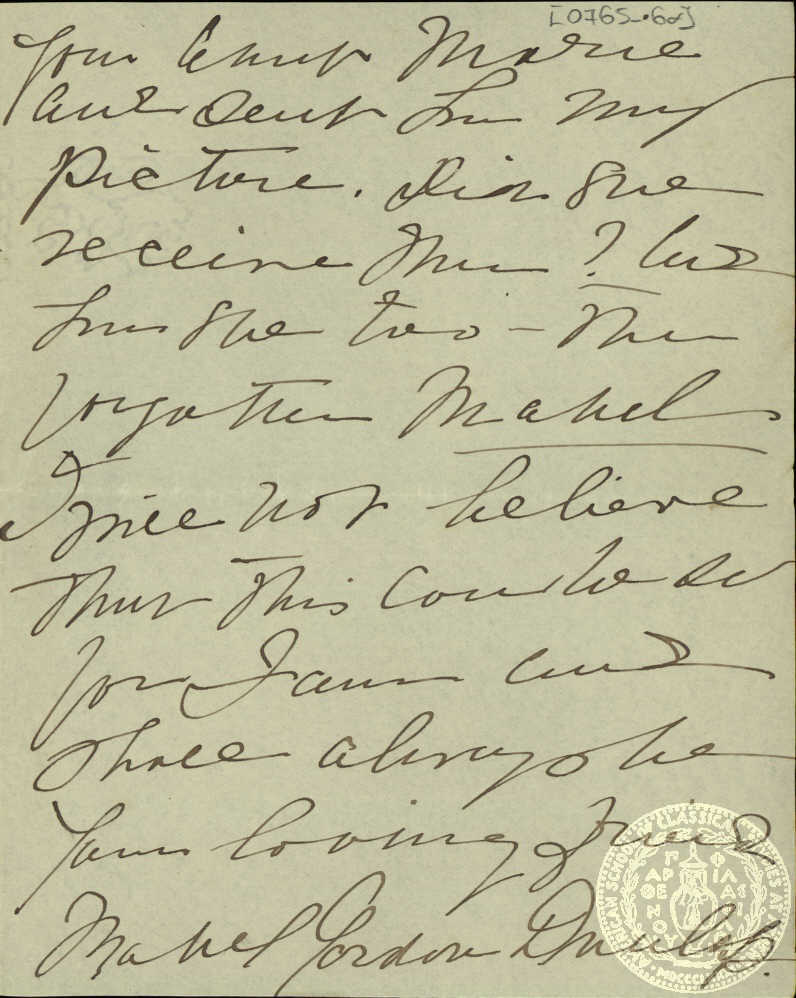 [0765-.6α]
Your Aunt Marie
and sent her my
picture. Did she
receive them? And
has she too - then
forgotten Mabel
I will not believe
that this could be so
for I am and
shall always be
Your loving friend
Mabel Gordon Dunlap.
AMERICAN SCHOOL OF CLASSICAL STUDIES AT
ΠΑΡΘΕΝΟΥ ΦΙΛΑΣ
MDCCC